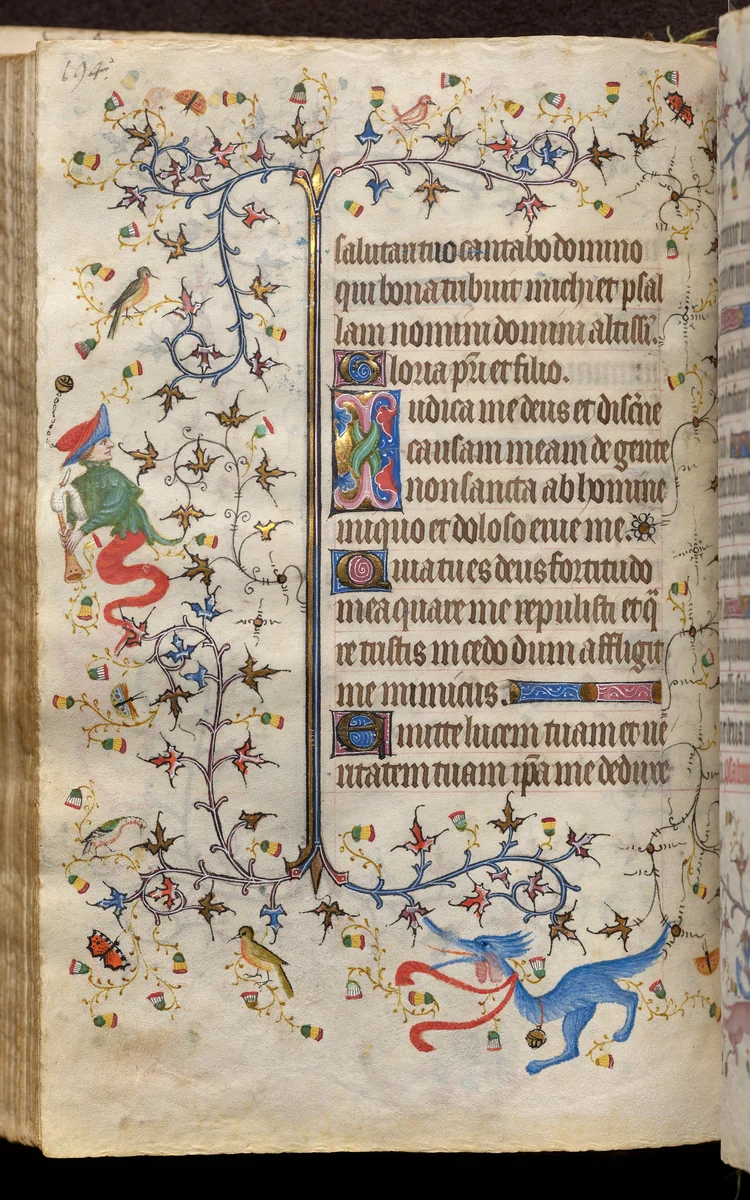 194.
salutari tuo cantabo domino
qui bona tribuit michi et psal
lam nomini domini altissi.
Gloria pr̄i et filio.
Iudica me deus et discerne
causam meam de gente
non sancta ab homine
iniquo et doloso erue me.
Quia tu es deus fortitudo
mea quare me repulisti et q̄
re tristis incedo dum affligit
me inimicus.
Emitte lucem tuam et ue
ritatem tuam ip̄a me deduxe